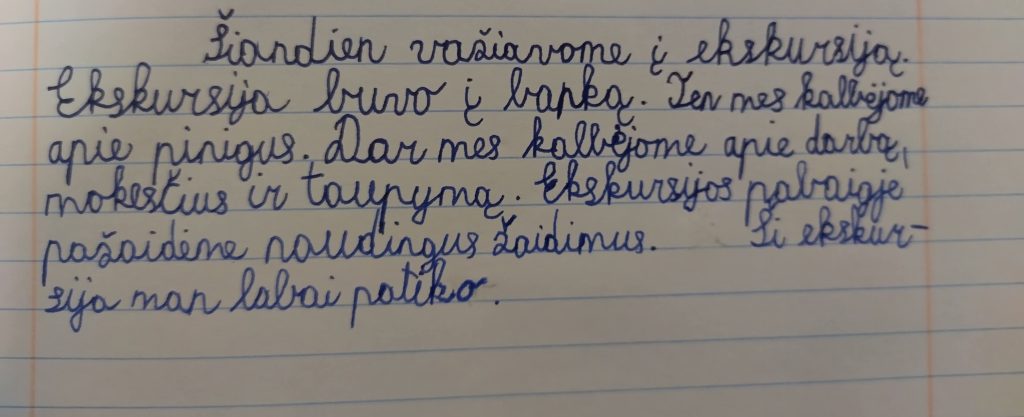 Šiandien važiavome į ekskursiją.
Ekskursija buvo į banką. Ten mes kalbėjome
apie pinigus. Dar mes kalbėjome apie darbą,
mokesčius ir taupymą. Ekskursijos pabaigje
pažaidėme naudingus žaidimus. Ši ekskur-
sija man labai patiko.